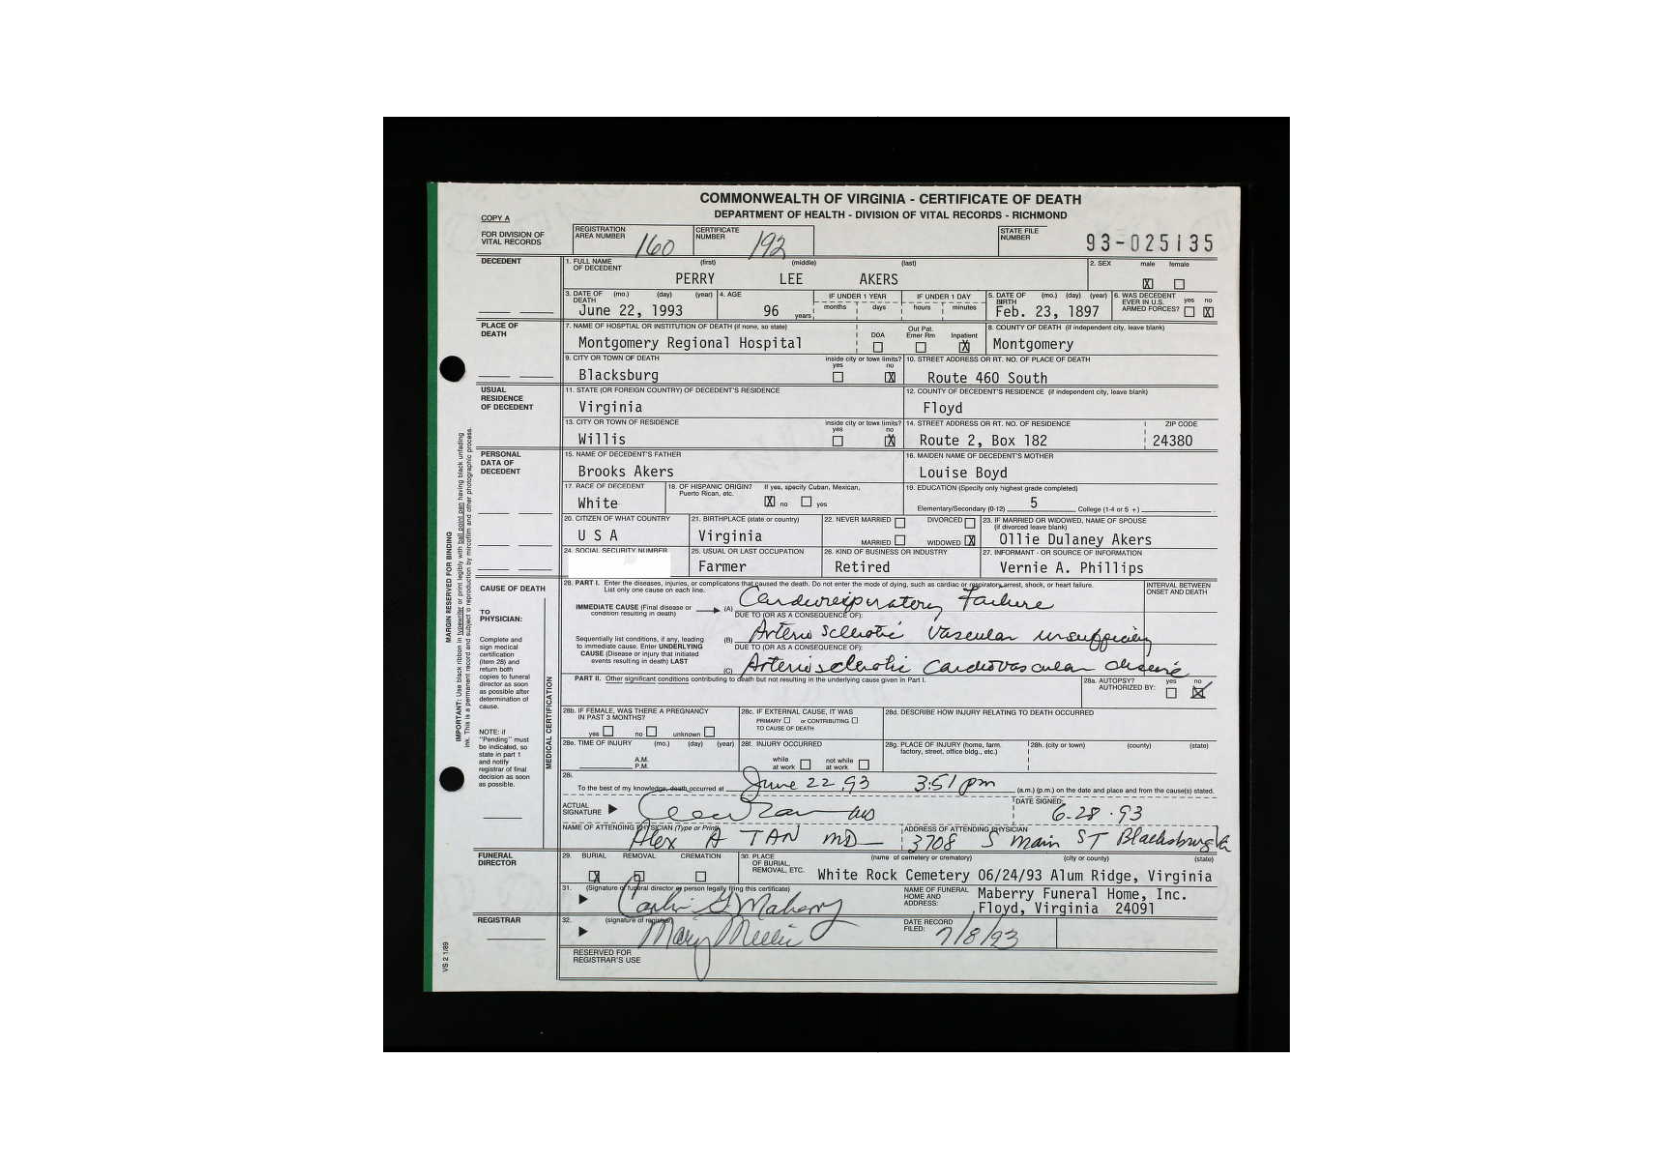 COMMONWEALTH OF VIRGINIA - CERTIFICATE OF DEATH
DEPARTMENT OF HEALTH - DIVISION OF VITAL RECORDS - RICHMOND
COPY A
FOR DIVISION OF VITAL RECORDS
REGISTRATION AREA NUMBER 160
CERTIFICATE NUMBER 192
STATE FILE NUMBER 93-025135
DECEDENT
1. FULL NAME OF DECEDENT (first) (middle) (last)
PERRY LEE AKERS
2. SEX male X female
3. DATE OF DEATH (mo.) (day) (year)
June 22, 1993
4. AGE 96 years
IF UNDER 1 YEAR months days
IF UNDER 1 DAY hours minutes
5. DATE OF BIRTH (mo.) (day) (year)
Feb. 23, 1897
6. WAS DECEDENT EVER IN U.S. ARMED FORCES? yes no X
PLACE OF DEATH
7. NAME OF HOSPTIAL OR INSTITUTION OF DEATH (if none, so state)
Montgomery Regional Hospital
DOA Out Pat. Emer Rm Inpatient X
8. COUNTY OF DEATH (if independent city, leave blank)
Montgomery
9. CITY OR TOWN OF DEATH
Blacksburg
inside city or town limits? yes no X
10. STREET ADDRESS OR RT. NO. OF PLACE OF DEATH
Route 460 South
USUAL RESIDENCE OF DECEDENT
11. STATE (OR FOREIGN COUNTRY) OF DECEDENT'S RESIDENCE
Virginia
12. COUNTY OF DECEDENT'S RESIDENCE (if independent city, leave blank)
Floyd
13. CITY OR TOWN OF RESIDENCE
Willis
inside city or town limits? yes no X
14. STREET ADDRESS OR RT. NO. OF RESIDENCE
Route 2, Box 182
ZIP CODE
24380
PERSONAL DATA OF DECEDENT
15. NAME OF DECEDENT'S FATHER
Brooks Akers
16. MAIDEN NAME OF DECEDENT'S MOTHER
Louise Boyd
17. RACE OF DECEDENT
White
18. OF HISPANIC ORIGIN? If yes, specify Cuban, Mexican, Puerto Rican, etc.
X no yes
19. EDUCATION (Specify only highest grade completed)
Elementary/Secondary (0-12) 5 College (1-4 or 5 +)
20. CITIZEN OF WHAT COUNTRY
U S A
21. BIRTHPLACE (state or country)
Virginia
22. NEVER MARRIED DIVORCED
MARRIED WIDOWED X
23. IF MARRIED OR WIDOWED, NAME OF SPOUSE (if divorced leave blank)
Ollie Dulaney Akers
24. SOCIAL SECURITY NUMBER
25. USUAL OR LAST OCCUPATION
Farmer
26. KIND OF BUSINESS OR INDUSTRY
Retired
27. INFORMANT - OR SOURCE OF INFORMATION
Vernie A. Phillips
CAUSE OF DEATH
28. PART I. Enter the diseases, injuries, or complicatons that caused the death. Do not enter the mode of dying, such as cardiac or respiratory arrest, shock, or heart failure.
List only one cause on each line.
INTERVAL BETWEEN ONSET AND DEATH
IMMEDIATE CAUSE (Final disease or condition resulting in death)
(A) Cardiorespiratory Failure
DUE TO (OR AS A CONSEQUENCE OF):
Sequentially list conditions, if any, leading to immediate cause. Enter UNDERLYING CAUSE (Disease or injury that initiated events resulting in death) LAST
(B) Arterio Sclerotic Vascular insufficiency
DUE TO (OR AS A CONSEQUENCE OF):
(C) Arteriosclerotic Cardiovascular disease
PART II. Other significant conditions contributing to death but not resulting in the underlying cause given in Part I.
28a. AUTOPSY? AUTHORIZED BY: yes no X
TO PHYSICIAN:
Complete and sign medical certification (item 28) and return both copies to funeral director as soon as possible after determination of cause.
NOTE: if "Pending" must be indicated, so state in part 1 and notify registrar of final decision as soon as possible.
MEDICAL CERTIFICATION
28b. IF FEMALE, WAS THERE A PREGNANCY IN PAST 3 MONTHS?
yes no unknown
28c. IF EXTERNAL CAUSE, IT WAS
PRIMARY or CONTRIBUTING
TO CAUSE OF DEATH
28d. DESCRIBE HOW INJURY RELATING TO DEATH OCCURRED
28e. TIME OF INJURY (mo.) (day) (year)
A.M.
P.M.
28f. INJURY OCCURRED
while at work not while at work
28g. PLACE OF INJURY (home, farm, factory, street, office bldg., etc.)
28h. (city or town) (county) (state)
28i.
To the best of my knowledge, death occurred at June 22, 93 3:51 pm (a.m.) (p.m.) on the date and place and from the cause(s) stated.
ACTUAL SIGNATURE
DATE SIGNED:
6-28-93
NAME OF ATTENDING PHYSICIAN (Type or Print)
Alex A TAN MD
ADDRESS OF ATTENDING PHYSICIAN
3708 S Main ST Blacksburg Va
FUNERAL DIRECTOR
29. BURIAL X REMOVAL CREMATION
30. PLACE OF BURIAL, REMOVAL, ETC. (name of cemetery or crematory) (city or county) (state)
White Rock Cemetery 06/24/93 Alum Ridge, Virginia
31. (Signature of funeral director or person legally filing this certificate)
NAME OF FUNERAL HOME AND ADDRESS:
Maberry Funeral Home, Inc.
Floyd, Virginia 24091
REGISTRAR
32. (signature of registrar)
DATE RECORD FILED: 7/8/93
RESERVED FOR REGISTRAR'S USE
MARGIN RESERVED FOR BINDING
IMPORTANT: Use black ribbon in typewriter or print legibly with ball point pen having black unfading
ink. This is a permanent record and subject to reproduction by mircofilm and other photographic process.
VS 2 1/89